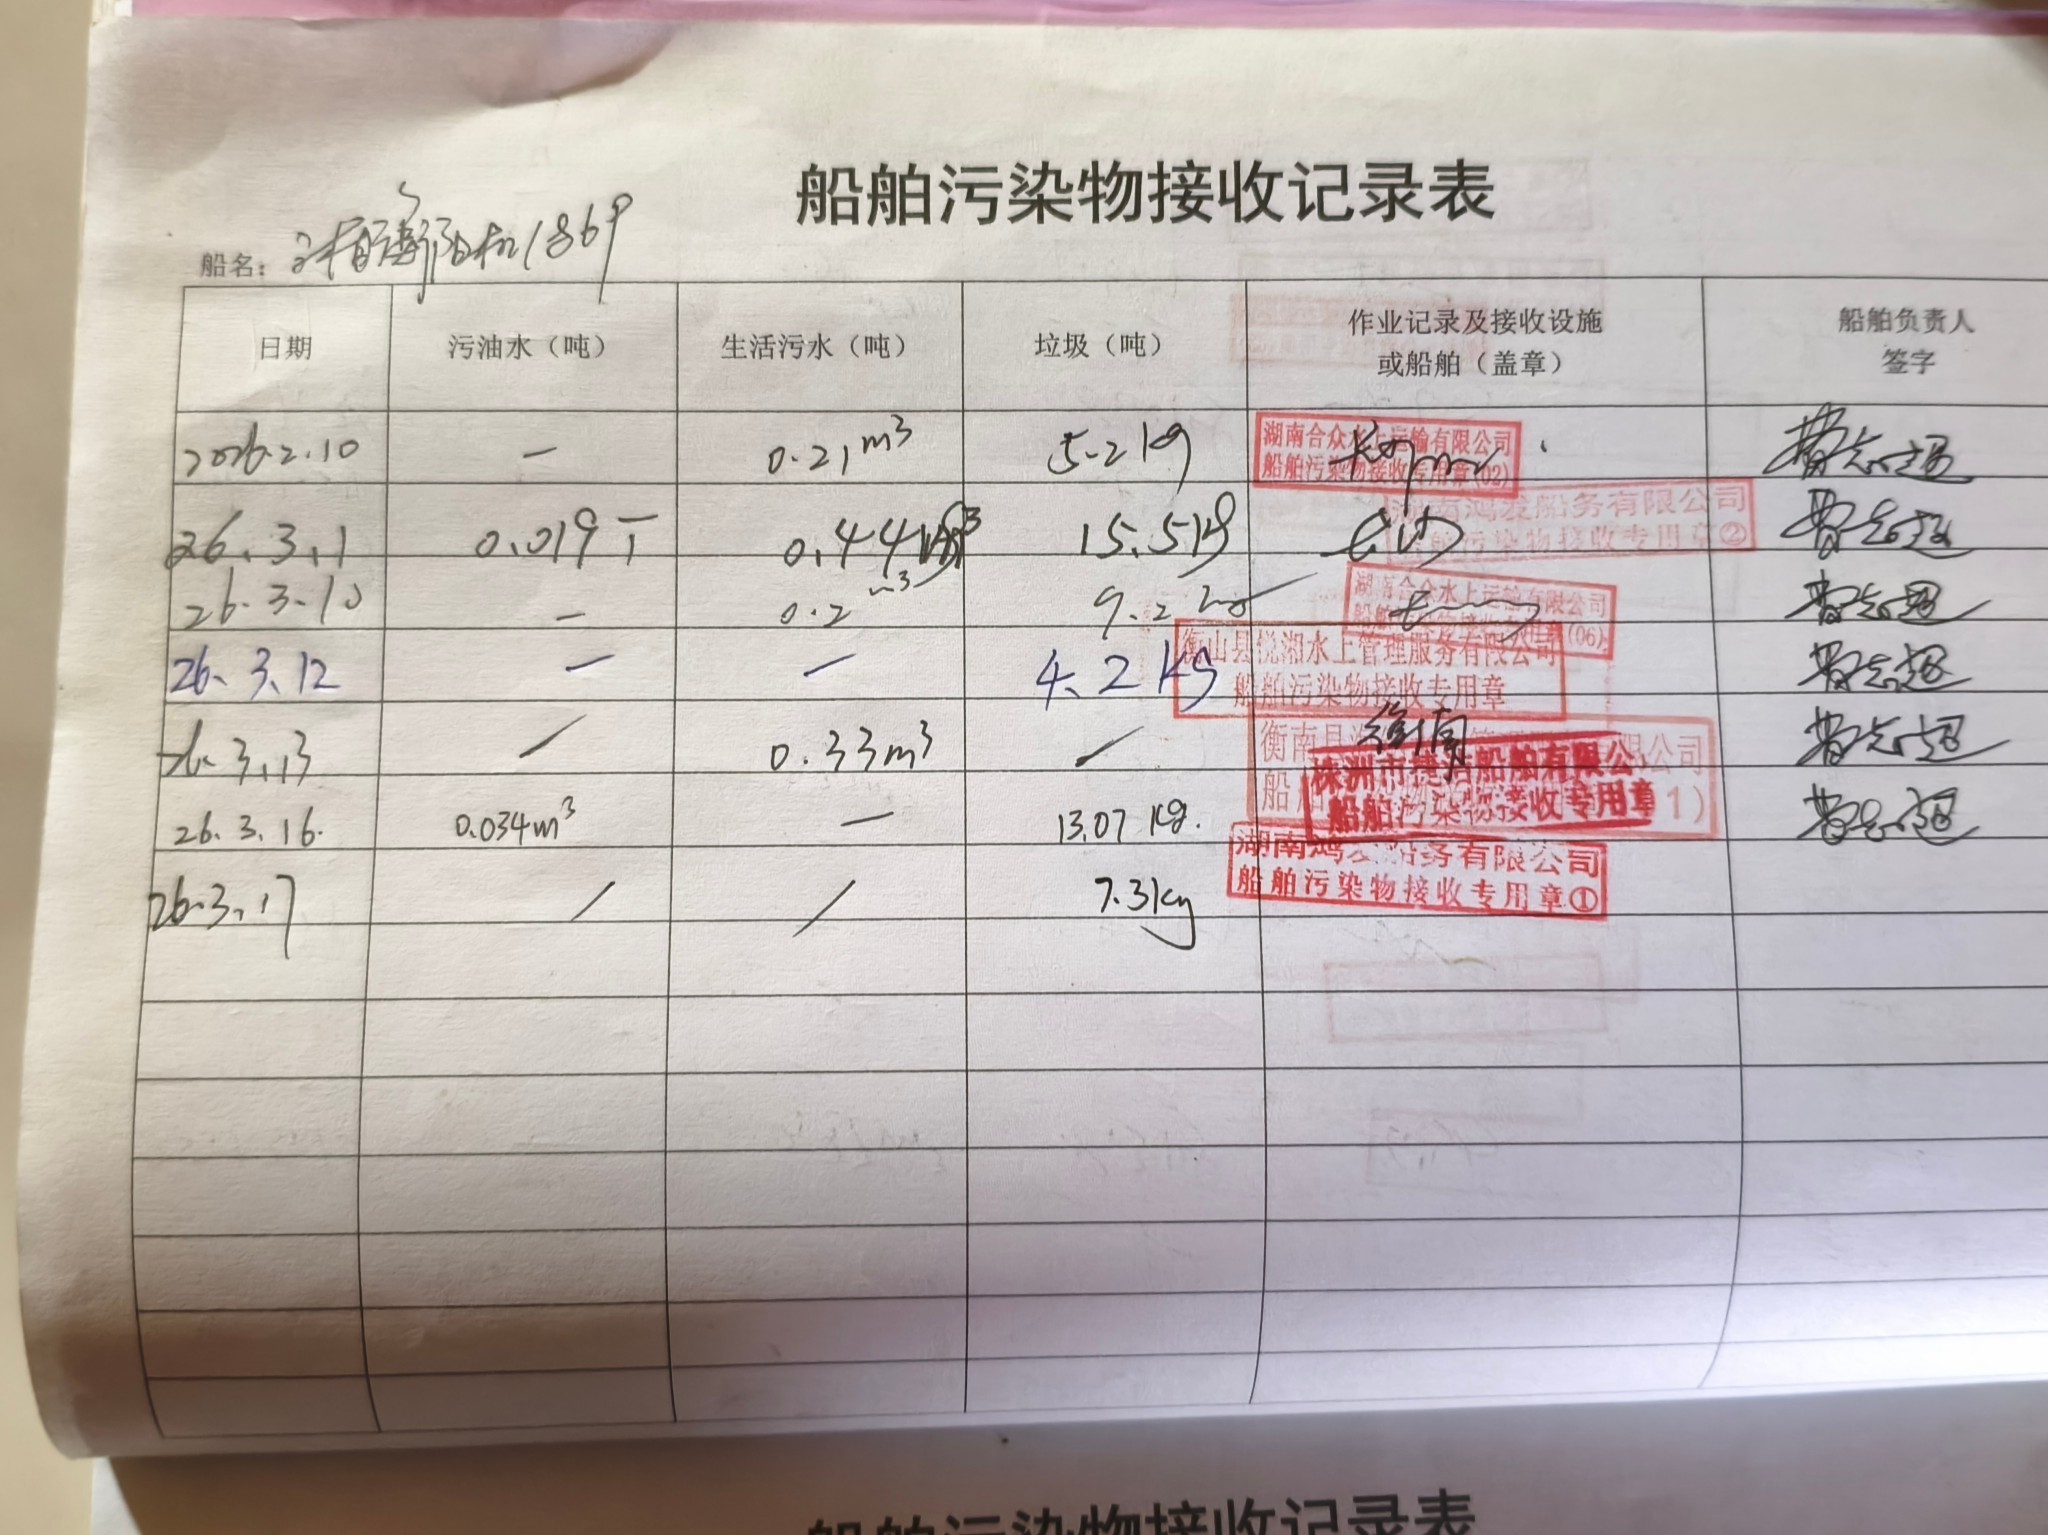 船舶污染物接收记录表
船名: 1869
日期 污油水（吨） 生活污水（吨） 垃圾（吨） 作业记录及接收设施或船舶（盖章） 船舶负责人签字
2026.2.10 — 0.21m³ 5.2kg 湖南合众水上运输有限公司 船舶污染物接收专用章(02)
26.3.1 0.019T 0.44m³ 15.5kg 湖南鸿发船务有限公司 船舶污染物接收专用章②
26.3.10 — 0.2m³ 9.2kg 湖南合众水上运输有限公司 (06)
26.3.12 — — 4.2kg 衡山县悦湘水上管理服务有限公司 船舶污染物接收专用章
26.3.13 / 0.33m³ / 衡南 衡南县 有限公司 船舶 1)
26.3.16. 0.034m³ — 13.07kg. 株洲市捷 船舶有限公 船舶污染物接收专用章
26.3.17 / / 7.3kg 湖南鸿发船务有限公司 船舶污染物接收专用章①
船舶污染物接收记录表